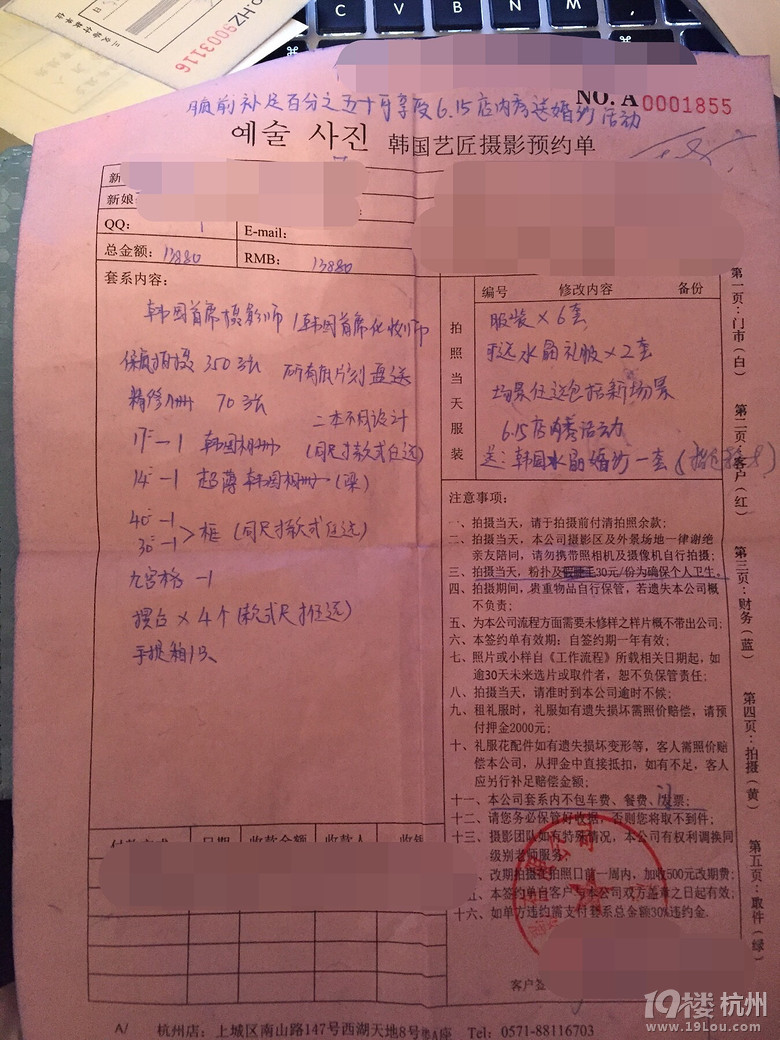 HZ9003116
C V B N M
⌘
NO. A 0001855
前补足百分之五十可享受6.15店内秀送婚纱活动
예술 사진 韩国艺匠摄影预约单
新
新娘
QQ:
E-mail:
总金额: 13880
RMB: 13880
套系内容:
韩国首席摄影师/韩国首席化妆师
保底拍摄 350张 所有底片刻盘送
精修册 70张 二本不同设计
17"-1 韩国相册 (同尺寸款式任选)
14"-1 超薄韩国相册 (梁)
40"-1
30"-1 >框 (同尺寸款式任选)
九宫格-1
摆台×4个(款式尺寸任选)
手提箱1只
拍照当天服装
编号 修改内容 备份
服装×6套
水晶礼服×2套
场景任选包括新场景
6.15店内秀活动
送:韩国水晶婚纱一套
注意事项:
一、拍摄当天,请于拍摄前付清拍照余款;
二、拍摄当天,本公司摄影区及外景场地一律谢绝
亲友陪同,请勿携带照相机及摄像机自行拍摄;
三、拍摄当天,粉扑及假睫毛30元/份为确保个人卫生。
四、拍摄期间,贵重物品自行保管,若遗失本公司概
不负责;
五、为本公司流程方面需要未修样之样片概不带出公司;
六、本签约单有效期:自签约期一年有效;
七、照片或小样自《工作流程》所载相关日期起,如
逾30天未来选片或取件者,恕不负保管责任;
八、拍摄当天,请准时到本公司逾时不候;
九、租礼服时,礼服如有遗失损坏需照价赔偿,请预
付押金2000元;
十、礼服花配件如有遗失损坏变形等,客人需照价赔
偿本公司,从押金中直接抵扣,如有不足,客人
应另行补足赔偿金额;
十一、本公司套系内不包车费、餐费、门票;
十二、请您务必保管好收据,否则您将取不到件;
十三、摄影团队如有特殊情况,本公司有权利调换同
级别老师服务;
改期拍摄在拍照日前一周内,加收500元改期费;
本签约单自客户与本公司双方盖章之日起有效;
十六、如单方违约需支付套系总金额30%违约金.
付款方式 日期 收款金额 收款人 收银
客户签
第一页:门市(白)
第二页:客户(红)
第三页:财务(蓝)
第四页:拍摄(黄)
第五页:取件(绿)
A/ 杭州店:上城区南山路147号西湖天地8号楼A座 Tel: 0571-88116703
19楼 杭州
www.19lou.com